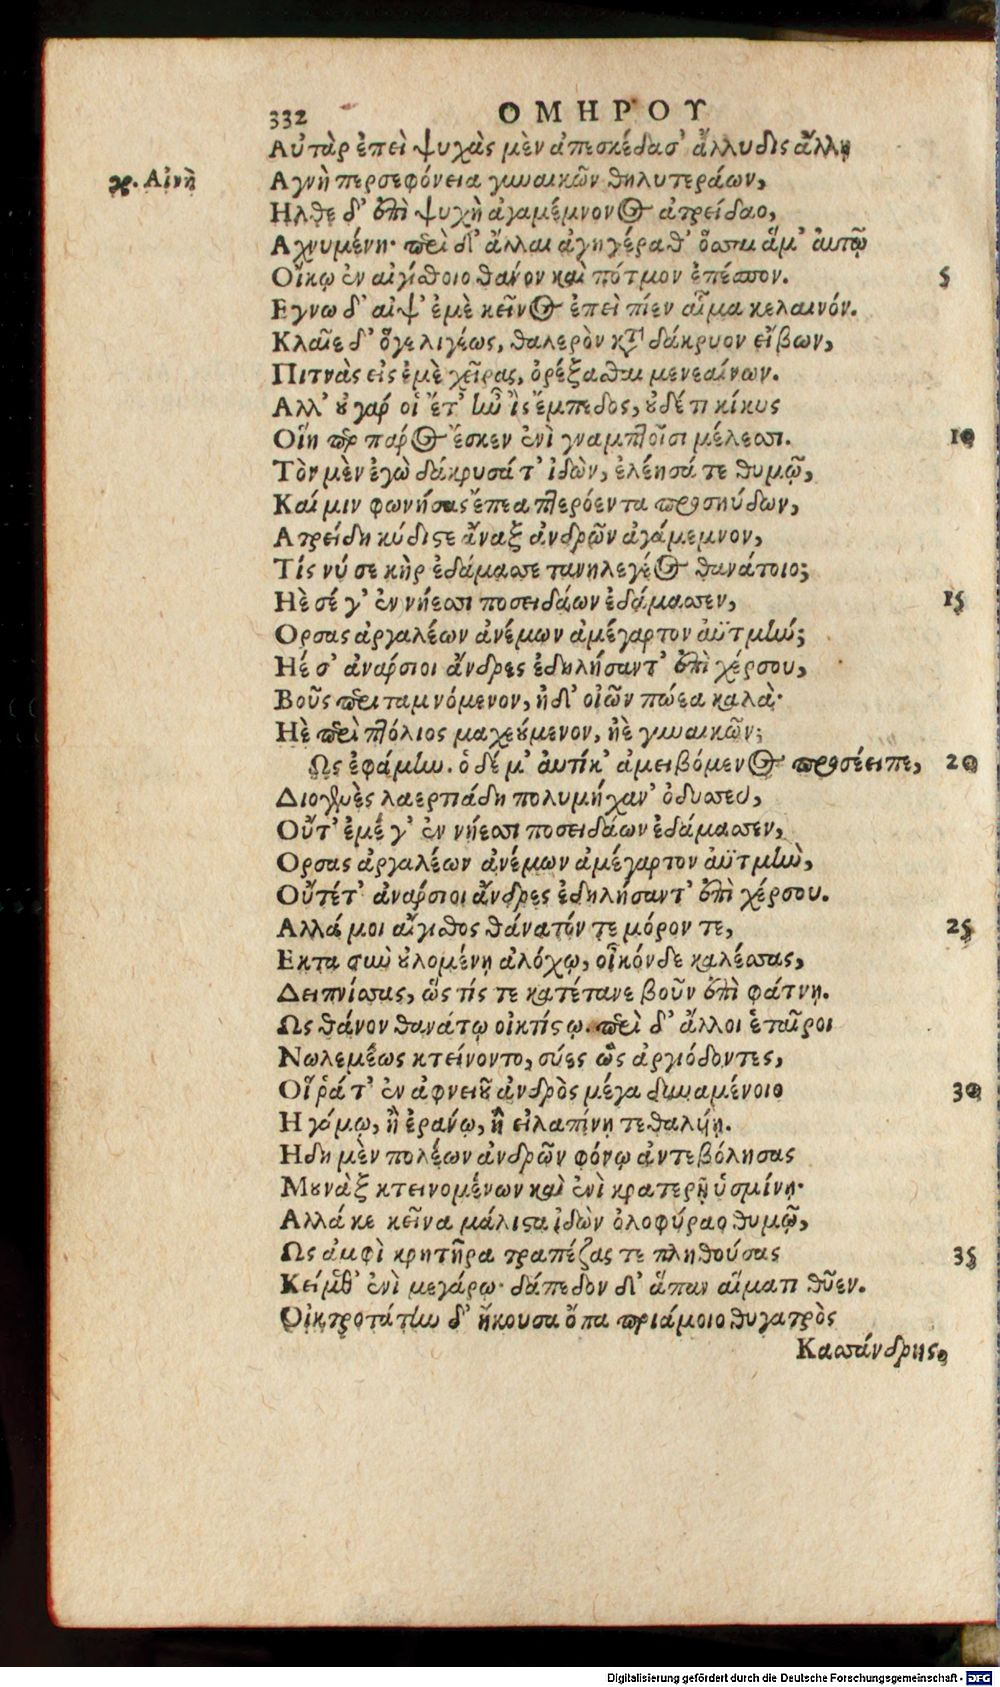 332 ΟΜΗΡΟΥ
Αὐτὰρ ἐπεὶ ψυχὰς μὲν ἀπεσκέδασ' ἄλλυδις ἄλλη
γρ. Αἰνὴ
Αγνὴ περσεφόνεια γυναικῶν θηλυτεράων,
Ηλθε δ' ἐπὶ ψυχὴ ἀγαμέμνονος ἀτρείδαο,
Αχνυμένη· περὶ δ' ἄλλαι ἀγηγέραθ' ὅσσαι ἅμ' αὐτῷ
Οἴκῳ ἐν αἰγίσθοιο θάνον καὶ πότμον ἐπέσπον. 5
Εγνω δ' αἶψ' ἐμὲ κεῖνος ἐπεὶ πίεν αἷμα κελαινόν.
Κλαῖε δ' ὅγε λιγέως, θαλερὸν κατὰ δάκρυον εἴβων,
Πιτνὰς εἰς ἐμὲ χεῖρας, ὀρέξασθαι μενεαίνων.
Αλλ' οὐ γάρ οἱ ἔτ' ἦν ἲς ἔμπεδος, οὐδέ τι κίκυς
Οἵη περ πάρος ἔσκεν ἐνὶ γναμπτοῖσι μέλεσσι. 10
Τὸν μὲν ἐγὼ δάκρυσά τ' ἰδὼν, ἐλέησά τε θυμῷ,
Καί μιν φωνήσας ἔπεα πτερόεντα προσηύδων,
Ατρείδη κύδιστε ἄναξ ἀνδρῶν ἀγάμεμνον,
Τίς νύ σε κὴρ ἐδάμασσε τανηλεγέος θανάτοιο;
Ηὲ σέ γ' ἐν νήεσσι ποσειδάων ἐδάμασσεν, 15
Ορσας ἀργαλέων ἀνέμων ἀμέγαρτον ἀϋτμήν;
Ηέ σ' ἀνάρσιοι ἄνδρες ἐδηλήσαντ' ἐπὶ χέρσου,
Βοῦς περιταμνόμενον, ἠδ' οἰῶν πώεα καλὰ·
Ηὲ περὶ πτόλιος μαχεούμενον, ἠὲ γυναικῶν;
Ως ἐφάμην. ὁ δέ μ' αὐτίκ' ἀμειβόμενος προσέειπε, 20
Διογενὲς λαερτιάδη πολυμήχαν' ὀδυσσεῦ,
Οὔτ' ἐμέ γ' ἐν νήεσσι ποσειδάων ἐδάμασσεν,
Ορσας ἀργαλέων ἀνέμων ἀμέγαρτον ἀϋτμὴν,
Οὔτέ τ' ἀνάρσιοι ἄνδρες ἐδηλήσαντ' ἐπὶ χέρσου.
Αλλά μοι αἴγισθος θάνατόν τε μόρον τε, 25
Εκτα σὺν οὐλομένῃ ἀλόχῳ, οἶκόνδε καλέσσας,
Δειπνίσσας, ὥς τίς τε κατέτανε βοῦν ἐπὶ φάτνῃ.
Ως θάνον θανάτῳ οἰκτίστῳ. περὶ δ' ἄλλοι ἑταῖροι
Νωλεμέως κτείνοντο, σύες ὣς ἀργιόδοντες,
Οἵ ῥά τ' ἐν ἀφνειοῦ ἀνδρὸς μέγα δυναμένοιο 30
Η γάμῳ, ἢ ἐράνῳ, ἢ εἰλαπίνῃ τεθαλυίῃ.
Ηδη μὲν πολέων ἀνδρῶν φόνῳ ἀντεβόλησας
Μουνὰξ κτεινομένων καὶ ἐνὶ κρατερῇ ὑσμίνῃ·
Αλλά κε κεῖνα μάλιστα ἰδὼν ὀλοφύραο θυμῷ,
Ως ἀμφὶ κρητῆρα τραπέζας τε πληθούσας 35
Κείμεθ' ἐνὶ μεγάρῳ· δάπεδον δ' ἅπαν αἵματι θῦεν.
Οἰκτροτάτην δ' ἤκουσα ὄπα πριάμοιο θυγατρὸς
Κασσάνδρης,
Digitalisierung gefördert durch die Deutsche Forschungsgemeinschaft - DFG